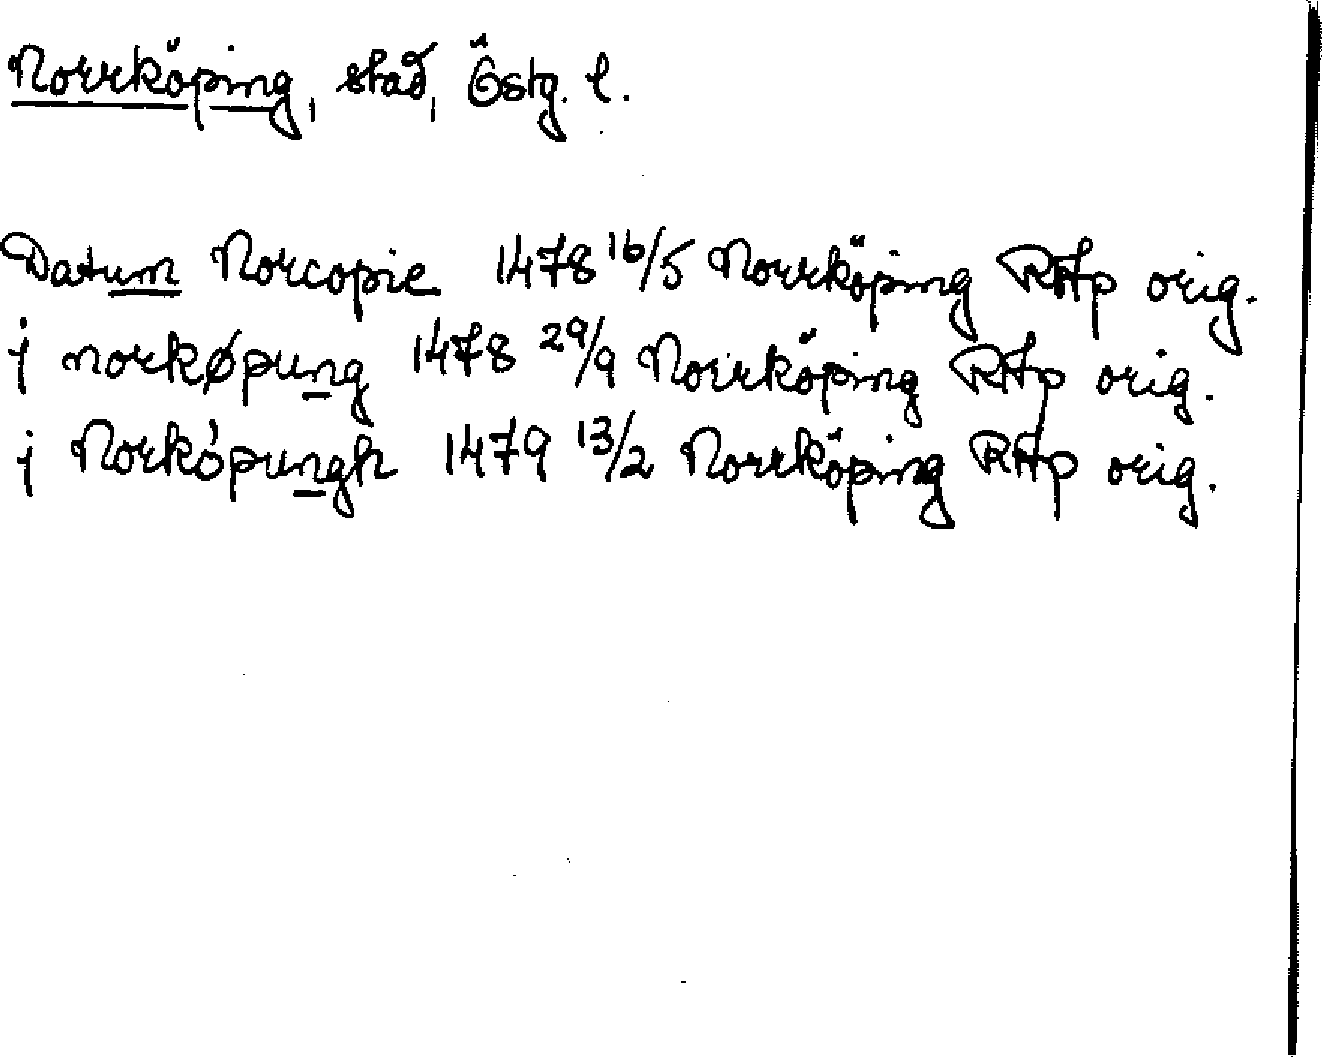 Norrköping, stad, Östg. l.
Datum Norcopie 1478 16/5 Norrköping RAp orig.
j norkøpung 1478 29/9 Norrköping RAp orig.
j Norkópungh 1479 13/2 Norrköping RAp orig.